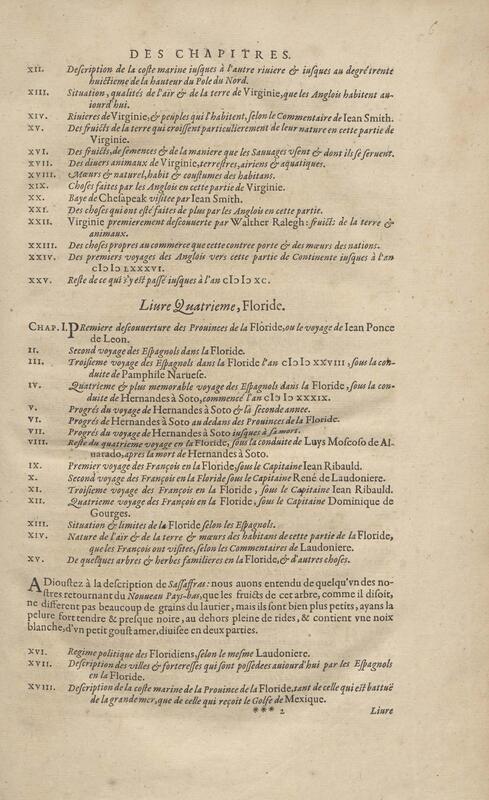 DES CHAPITRES.
XII. Description de la coste marine iusques à l'autre riuiere & iusques au degré trente
huictieme de la hauteur du Pole du Nord.
XIII. Situation, qualités de l'air & de la terre de Virginie, que les Anglois habitent au-
iourd'hui.
XIV. Riuieres de Virginie, & peuples qui l'habitent, selon le Commentaire de Iean Smith.
XV. Des fruicts de la terre qui croissent particulierement de leur nature en cette partie de
Virginie.
XVI. Des fruicts, de semences & de la maniere que les Sauuages vsent & dont ils se seruent.
XVII. Des diuers animaux de Virginie, terrestres, airiens & aquatiques.
XVIII. Mœurs & naturel, habit & coustumes des habitans.
XIX. Choses faites par les Anglois en cette partie de Virginie.
XX. Baye de Chesapeak visitee par Iean Smith.
XXI. Des choses qui ont esté faites de plus par les Anglois en cette partie.
XXII. Virginie premierement descouuerte par Walther Ralegh: fruicts de la terre &
animaux.
XXIII. Des choses propres au commerce que cette contree porte & des mœurs des nations.
XXIV. Des premiers voyages des Anglois vers cette partie de Continente iusques à l'an
cIↃ IↃ LXXXVI.
XXV. Reste de ce qui s'y est passé iusques à l'an cIↃ IↃ XC.
Liure Quatrieme, Floride.
CHAP. I. PRemiere descouuerture des Prouinces de la Floride, ou le voyage de Iean Ponce
de Leon.
II. Second voyage des Espagnols dans la Floride.
III. Troisieme voyage des Espagnols dans la Floride l'an cIↃ IↃ XXVIII, sous la con-
duite de Pamphile Naruese.
IV. Quatrieme & plus memorable voyage des Espagnols dans la Floride, sous la con-
duite de Hernandes à Soto, commencé l'an cIↃ IↃ XXXIX.
V. Progrés du voyage de Hernandes à Soto & là seconde annee.
VI. Progrés de Hernandes à Soto au dedans des Prouinces de la Floride.
VII. Progrés du voyage de Hernandes à Soto iusques à sa mort.
VIII. Reste du quatrieme voyage en la Floride, sous la conduite de Luys Moscoso de Al-
uarado, apres la mort de Hernandes à Soto.
IX. Premier voyage des François en la Floride, sous le Capitaine Iean Ribauld.
X. Second voyage des François en la Floride sous le Capitaine René de Laudoniere.
XI. Troisieme voyage des François en la Floride, sous le Capitaine Iean Ribauld.
XII. Quatrieme voyage des François en la Floride, sous le Capitaine Dominique de
Gourges.
XIII. Situation & limites de la Floride selon les Espagnols.
XIV. Nature de l'air & de la terre & mœurs des habitans de cette partie de la Floride,
que les François ont visitee, selon les Commentaires de Laudoniere.
XV. De quelques arbres & herbes familieres en la Floride, & d'autres choses.
ADioustez à la description de Sassafras: nous auons entendu de quelqu'vn des no-
stres retournant du Nouueau Pays-bas, que les fruicts de cet arbre, comme il disoit,
ne different pas beaucoup de grains du laurier, mais ils sont bien plus petits, ayans la
pelure fort tendre & presque noire, au dehors pleine de rides, & contient vne noix
blanche, d'vn petit goust amer, diuisee en deux parties.
XVI. Regime politique des Floridiens, selon le mesme Laudoniere.
XVII. Description des villes & forteresses qui sont possedees auiourd'hui par les Espagnols
en la Floride.
XVIII. Description de la coste marine de la Prouince de la Floride, tant de celle qui est battuë
de la grande mer, que de celle qui reçoit le Golfe de Mexique.
*** 2 Liure